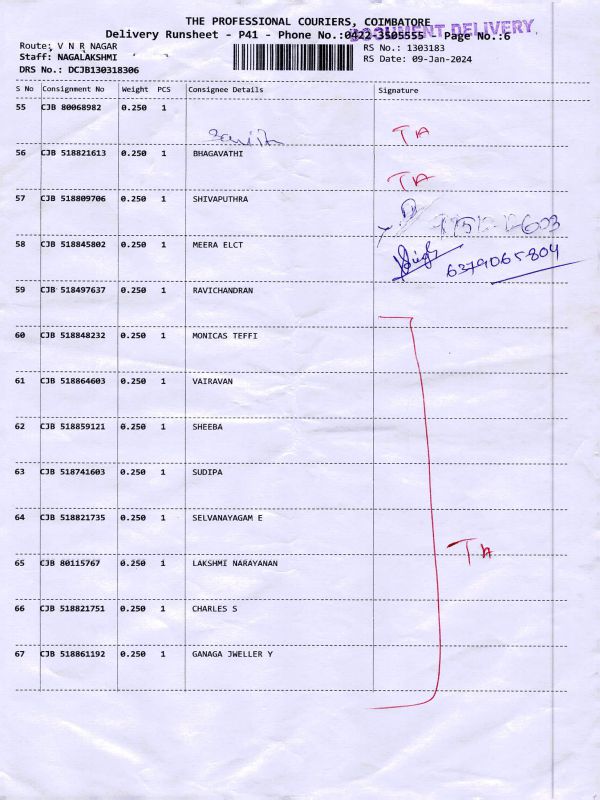 THE PROFESSIONAL COURIERS, COIMBATORE
DOCUMENT DELIVERY
Delivery Runsheet - P41 - Phone No.:0422-3505555 - Page No.:6
Route: V N R NAGAR RS No.: 1303183
Staff: NAGALAKSHMI RS Date: 09-Jan-2024
DRS No.: DCJB130318306
S No Consignment No Weight PCS Consignee Details Signature
55 CJB 80068982 0.250 1
TA
56 CJB 518821613 0.250 1 BHAGAVATHI
TA
57 CJB 518809706 0.250 1 SHIVAPUTHRA
58 CJB 518845802 0.250 1 MEERA ELCT
6379065804
59 CJB 518497637 0.250 1 RAVICHANDRAN
60 CJB 518848232 0.250 1 MONICAS TEFFI
61 CJB 518864603 0.250 1 VAIRAVAN
62 CJB 518859121 0.250 1 SHEEBA
63 CJB 518741603 0.250 1 SUDIPA
64 CJB 518821735 0.250 1 SELVANAYAGAM E
TA
65 CJB 80115767 0.250 1 LAKSHMI NARAYANAN
66 CJB 518821751 0.250 1 CHARLES S
67 CJB 518861192 0.250 1 GANAGA JWELLER Y